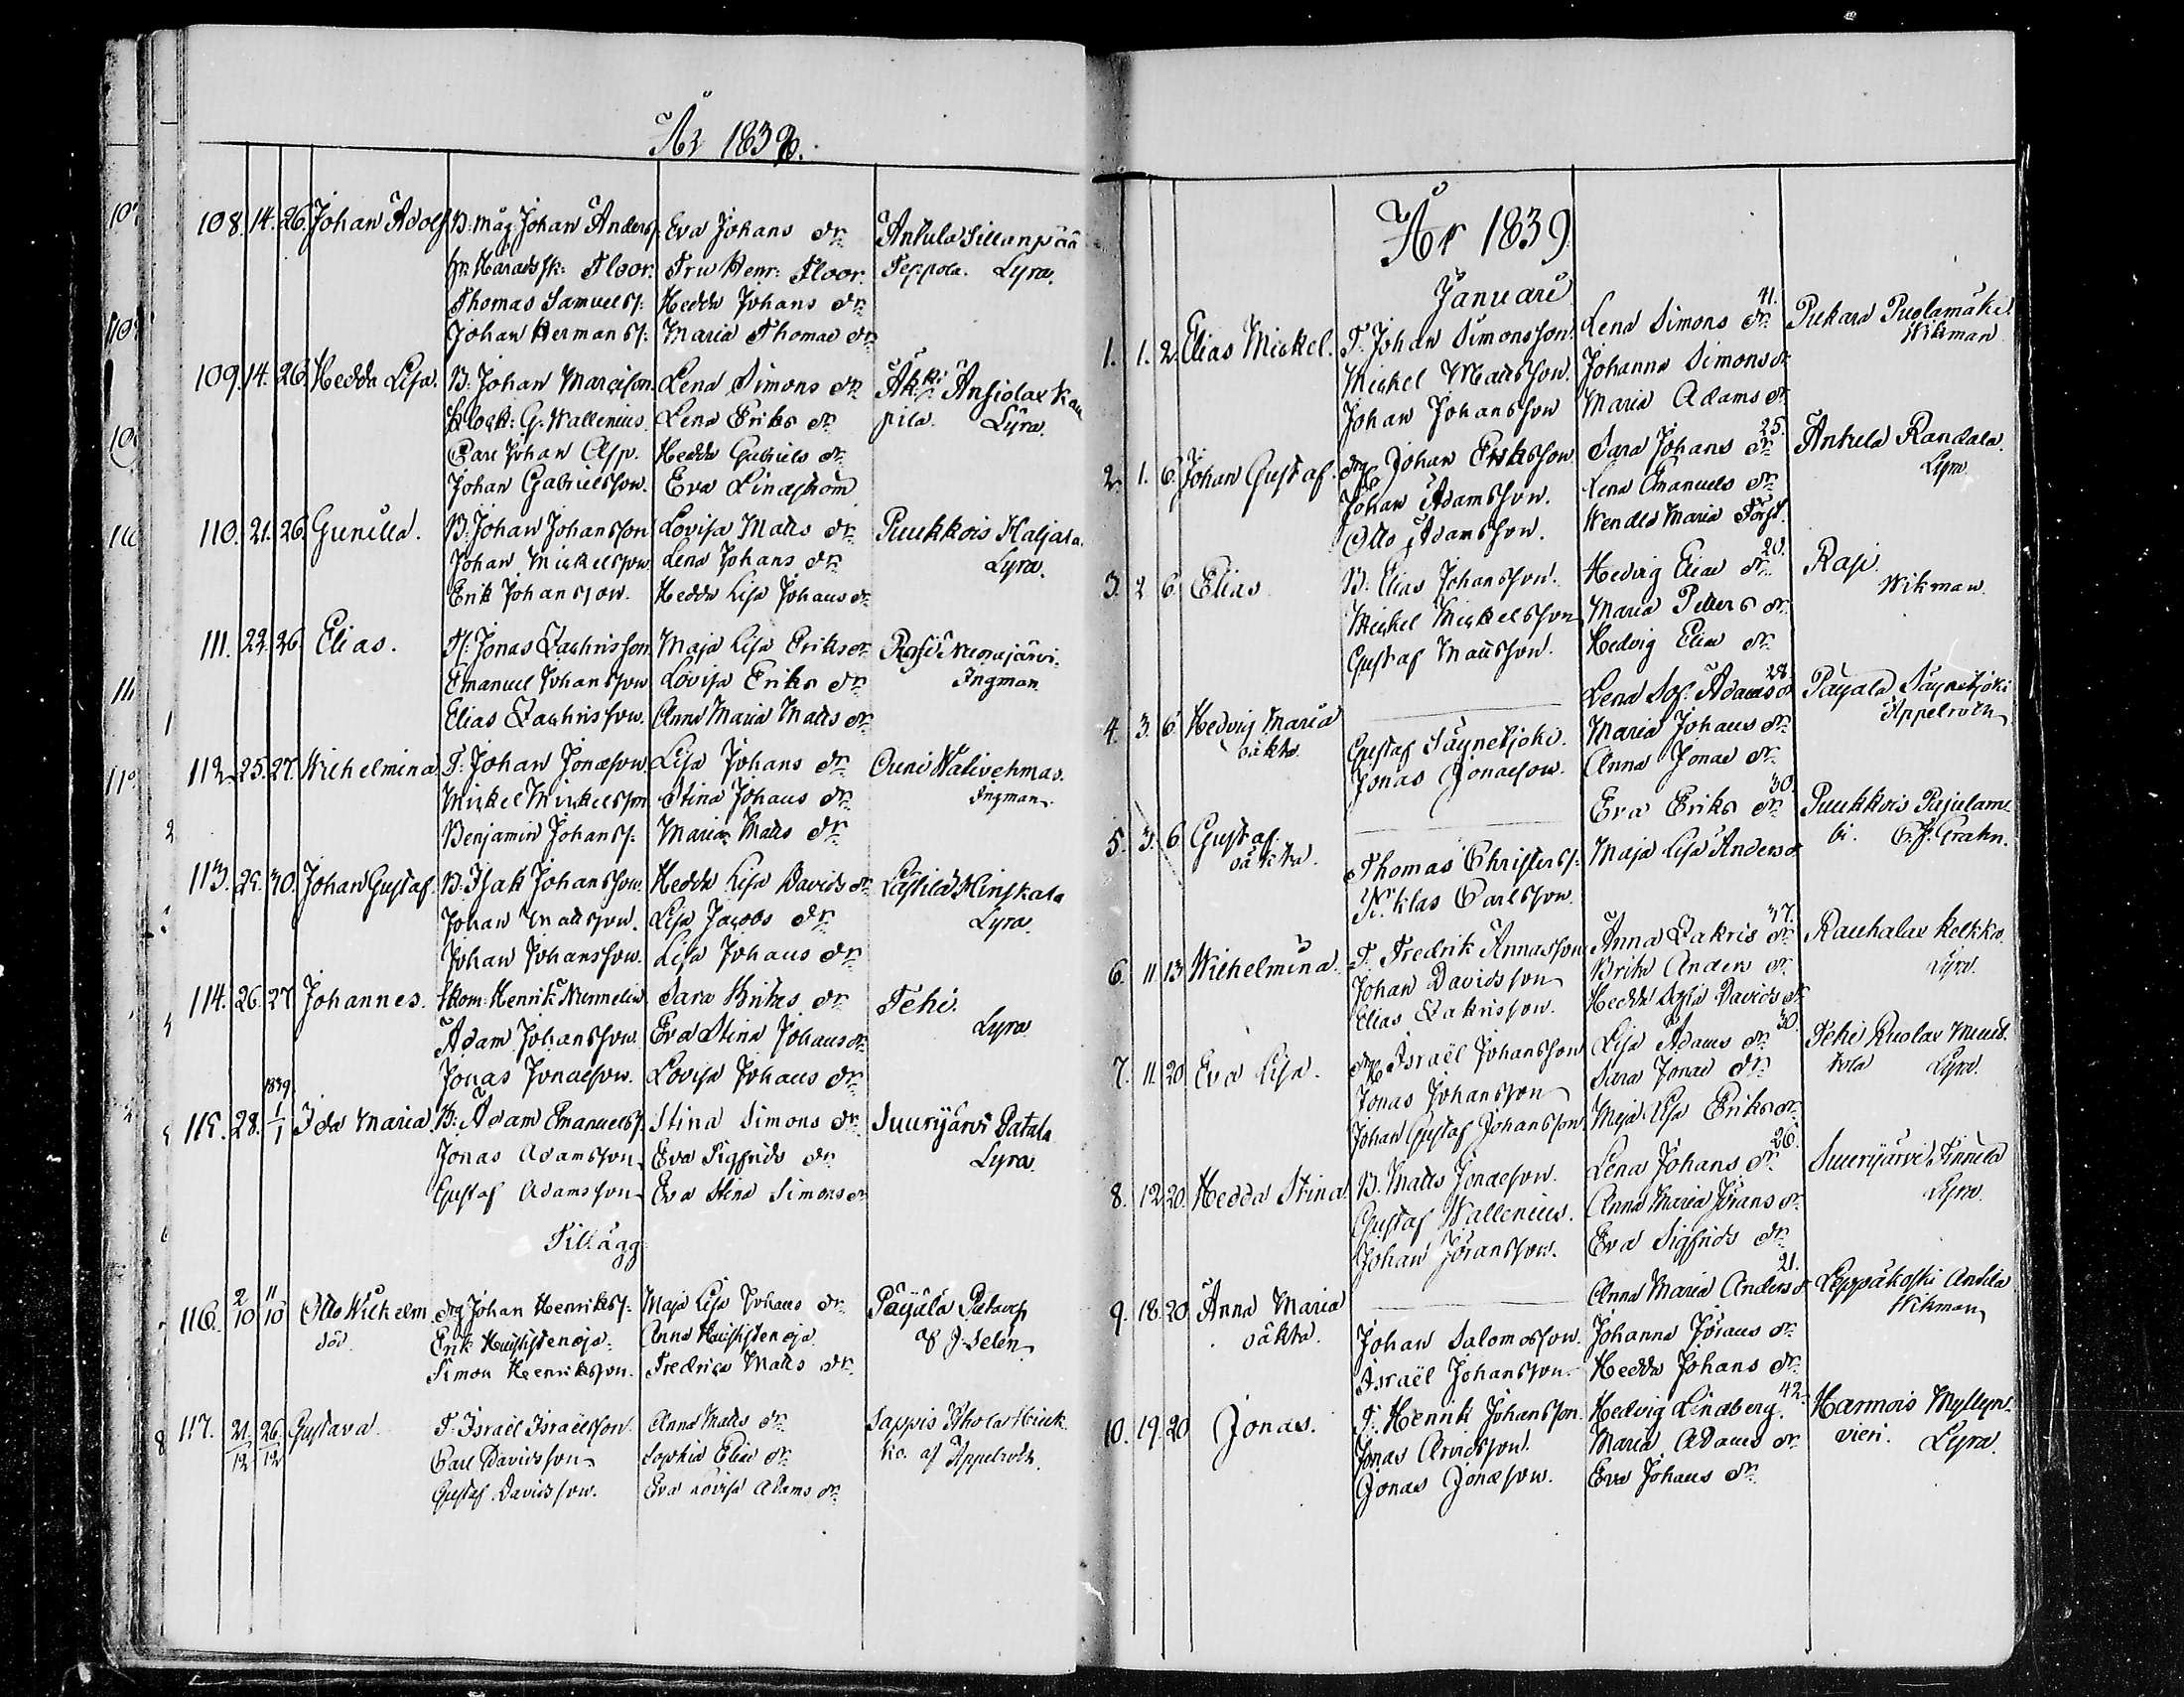 År 1838.
108. 14. 26. Johan Adolf B: måg Johan Anderss: Eva Johans dr. Ankula Sillanpää
Hr Haradssk: Floor. Fru Henr: Floor. Teppola. Lyra.
Thomas Samuelss: Hedda Johans dr
Johan Hermanss: Maria Thomæ dr
109. 14. 26. Hedda Lisa. B: Johan Marcisson. Lena Simons dr Ansiolax Kau
Klock: G. Wallenius. Lena Eriks dr pila. Lyra.
Carl Johan Asp. Hedda Gabriels dr
Johan Gabrielsson. Eva Lindström
110. 21. 26. Gunilla. B: Johan Johansson Lovisa Matts dr Puukkois Haljala.
Johan Mickelsson Lena Johans dr Lyra.
Erik Johansson. Hedda Lisa Johans dr
111. 22. 26. Elias. Jonas Zachrisson Maja Lisa Eriks dr Rasi Neuvajärvi.
Emanuel Johansson Lovisa Eriks dr Ingman
Elias Zachrisson. Anna Maria Matts dr
112. 25. 27. Wilhelmina T: Johan Jonæson. Lisa Johans dr Ouni Wälivehmas.
Mickel Mickelsson Stina Johans dr Ingman.
Benjamin Johanss: Maria Matts dr
113. 25. 30. Johan Gustaf. B: Isak Johansson. Hedda Lisa Davids dr Lastila Hinskala
Johan Mattsson. Lisa Jacobs dr Lyra.
Johan Johansson. Lisa Johans dr
114. 26. 27. Johannes. Skom: Henrik Nummelin Sara Eriks dr Tehi.
Adam Johansson. Eva Stina Johans dr Lyra
Jonas Jonæson. Lovisa Johans dr
1839
115. 28. 1/1 Ida Maria. B: Adam Emanuelss. Stina Simons dr Suurijärvi Patala
Jonas Adamsson Eva Sigfrids dr Lyra.
Gustaf Adamsson Eva Stina Simons dr
Tillägg
116. 2/10 11/10 Otto Wilhelm drg Johan Henrikss: Maja Lisa Johans dr Päyälä
död. Erik Anna af J. Selen
Simon Henriksson. Fredrica Matts dr
117. 21/12 26/12 Gustava. T: Israël Israëlsson Anna Matts dr Sappis
Carl Davidsson Sophia Eliæ dr ko. af Appelroth.
Gustaf Davidsson. Eva Lovisa Adams dr
År 1839
Januari
1. 1. 2. Elias Mickel. T. Johan Simonsson. Lena Simons dr 41. Pukara Puolamäki
Mickel Mattsson. Johanna Simons dr Wikman
Johan Johansson Maria Adams dr
2. 1. 6. Johan Gustaf. drg Johan Eriksson Sara Johans dr 25. Ankula Randala.
Johan Adamsson. Lena Emanuels dr Lyra
Otto Adamsson. Wendla Maria
3. 2. 6. Elias B: Elias Johansson. Hedvig Eliæ dr 20. Rasi.
Mickel Mickelsson Maria Petters dr Wikman.
Gustaf Mattsson. Hedvig Eliæ dr
4. 3. 6. Hedvig Maria Lena Sof. Adams dr 28. Päyälä Säynetjoki
oäkta Gustaf Säynetjoki. Maria Johans dr Appelroth
Jonas Jonæson. Anna Jonæ dr
5. 3. 6. Gustaf Eva Eriks dr 30. Puukkois Pajulam
oäkta. Thomas Christerss: Maja Lisa Anders dr bi. Grahn.
Niklas Carlsson.
6. 11. 13. Wilhelmina. T. Fredrik Annasson Anna Zakris dr 37. Rauhalax Kelkko
Johan Davidsson Brita Anders dr Lyra.
Elias Zakrisson. Hedda Sofia Davids dr
7. 11. 20. Eva Lisa. drg Israël Johansson Lisa Adams dr 30. Tehi Ruolax Muud
Jonas Johansson Sara Jonæ dr tola Lyra.
Johan Gustaf Johansson. Maja Lisa Eriks dr
8. 12. 20. Hedda Stina. B. Matts Jonæson. Lena Johans dr 26. Suurijärvi Finnilä
Gustaf Wallenius. Anna Maria Jörans dr Lyra.
Johan Jöransson. Eva Sigfrids dr
9. 18. 20. Anna Maria Anna Maria Anders dr 21. Leppäkoski Anttila
oäkta. Johan Salomosson. Johanna Jörans dr Wikman
Israël Johansson. Hedda Johans dr
10. 19. 20 Jonas. T: Henrik Johansson. Hedvig Lindberg. 42. Harmois Myllyn-
Jonas Arvidsson. Maria Adams dr vieri. Lyra.
Jonas Jonæson. Eva Johans dr